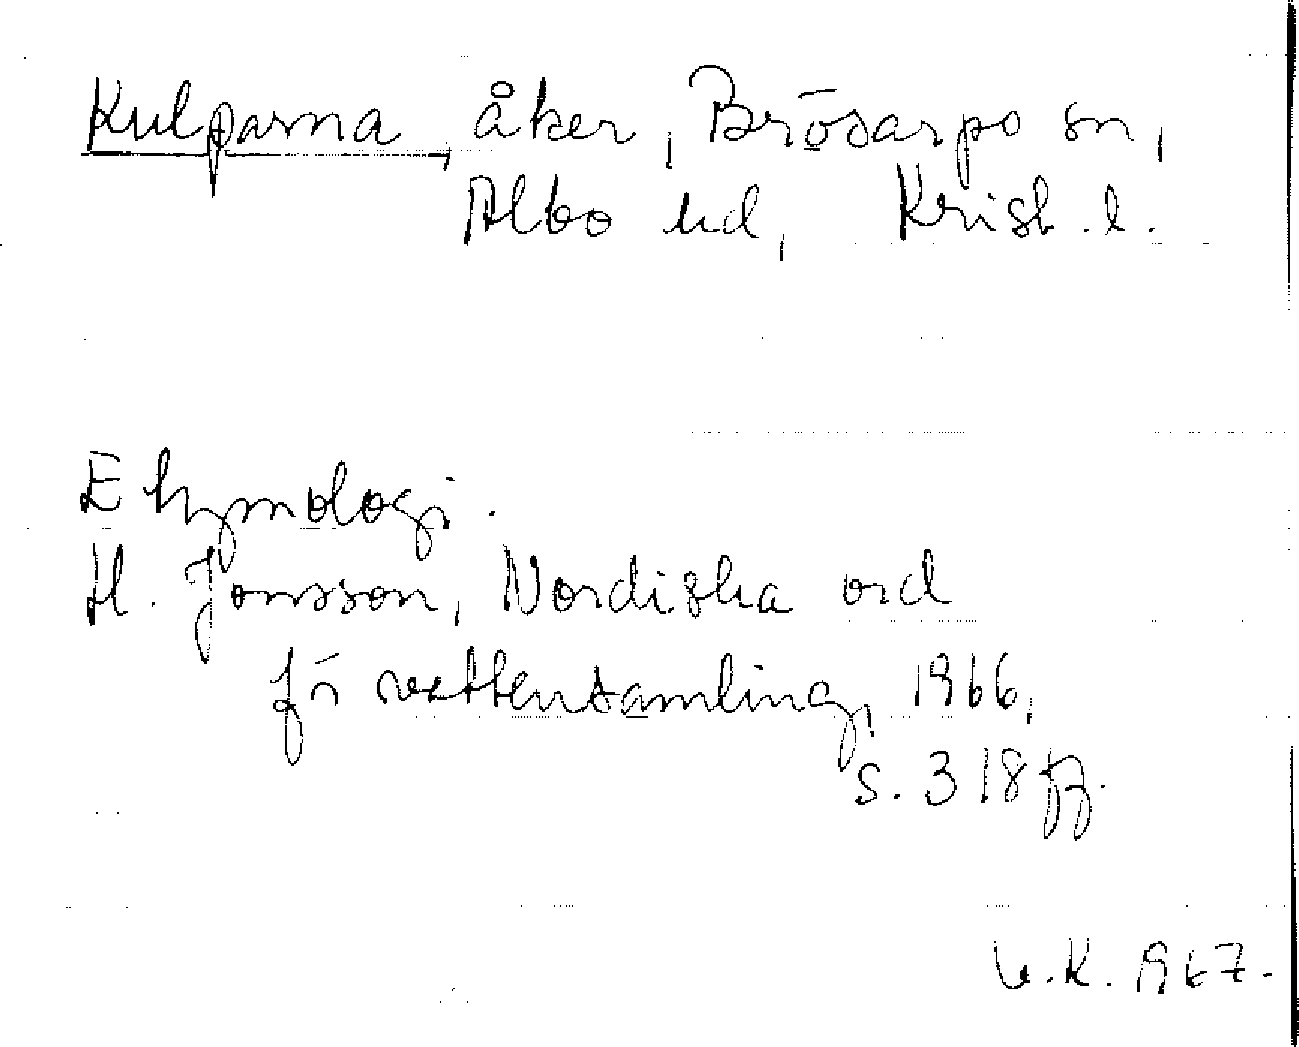 Kulparna, åker, Brösarps sn,
Albo hd, Krist. l.
Etymologi.
H. Jonsson, Nordiska ord
för vattensamling, 1966,
s. 318 ff.
K. 1967.